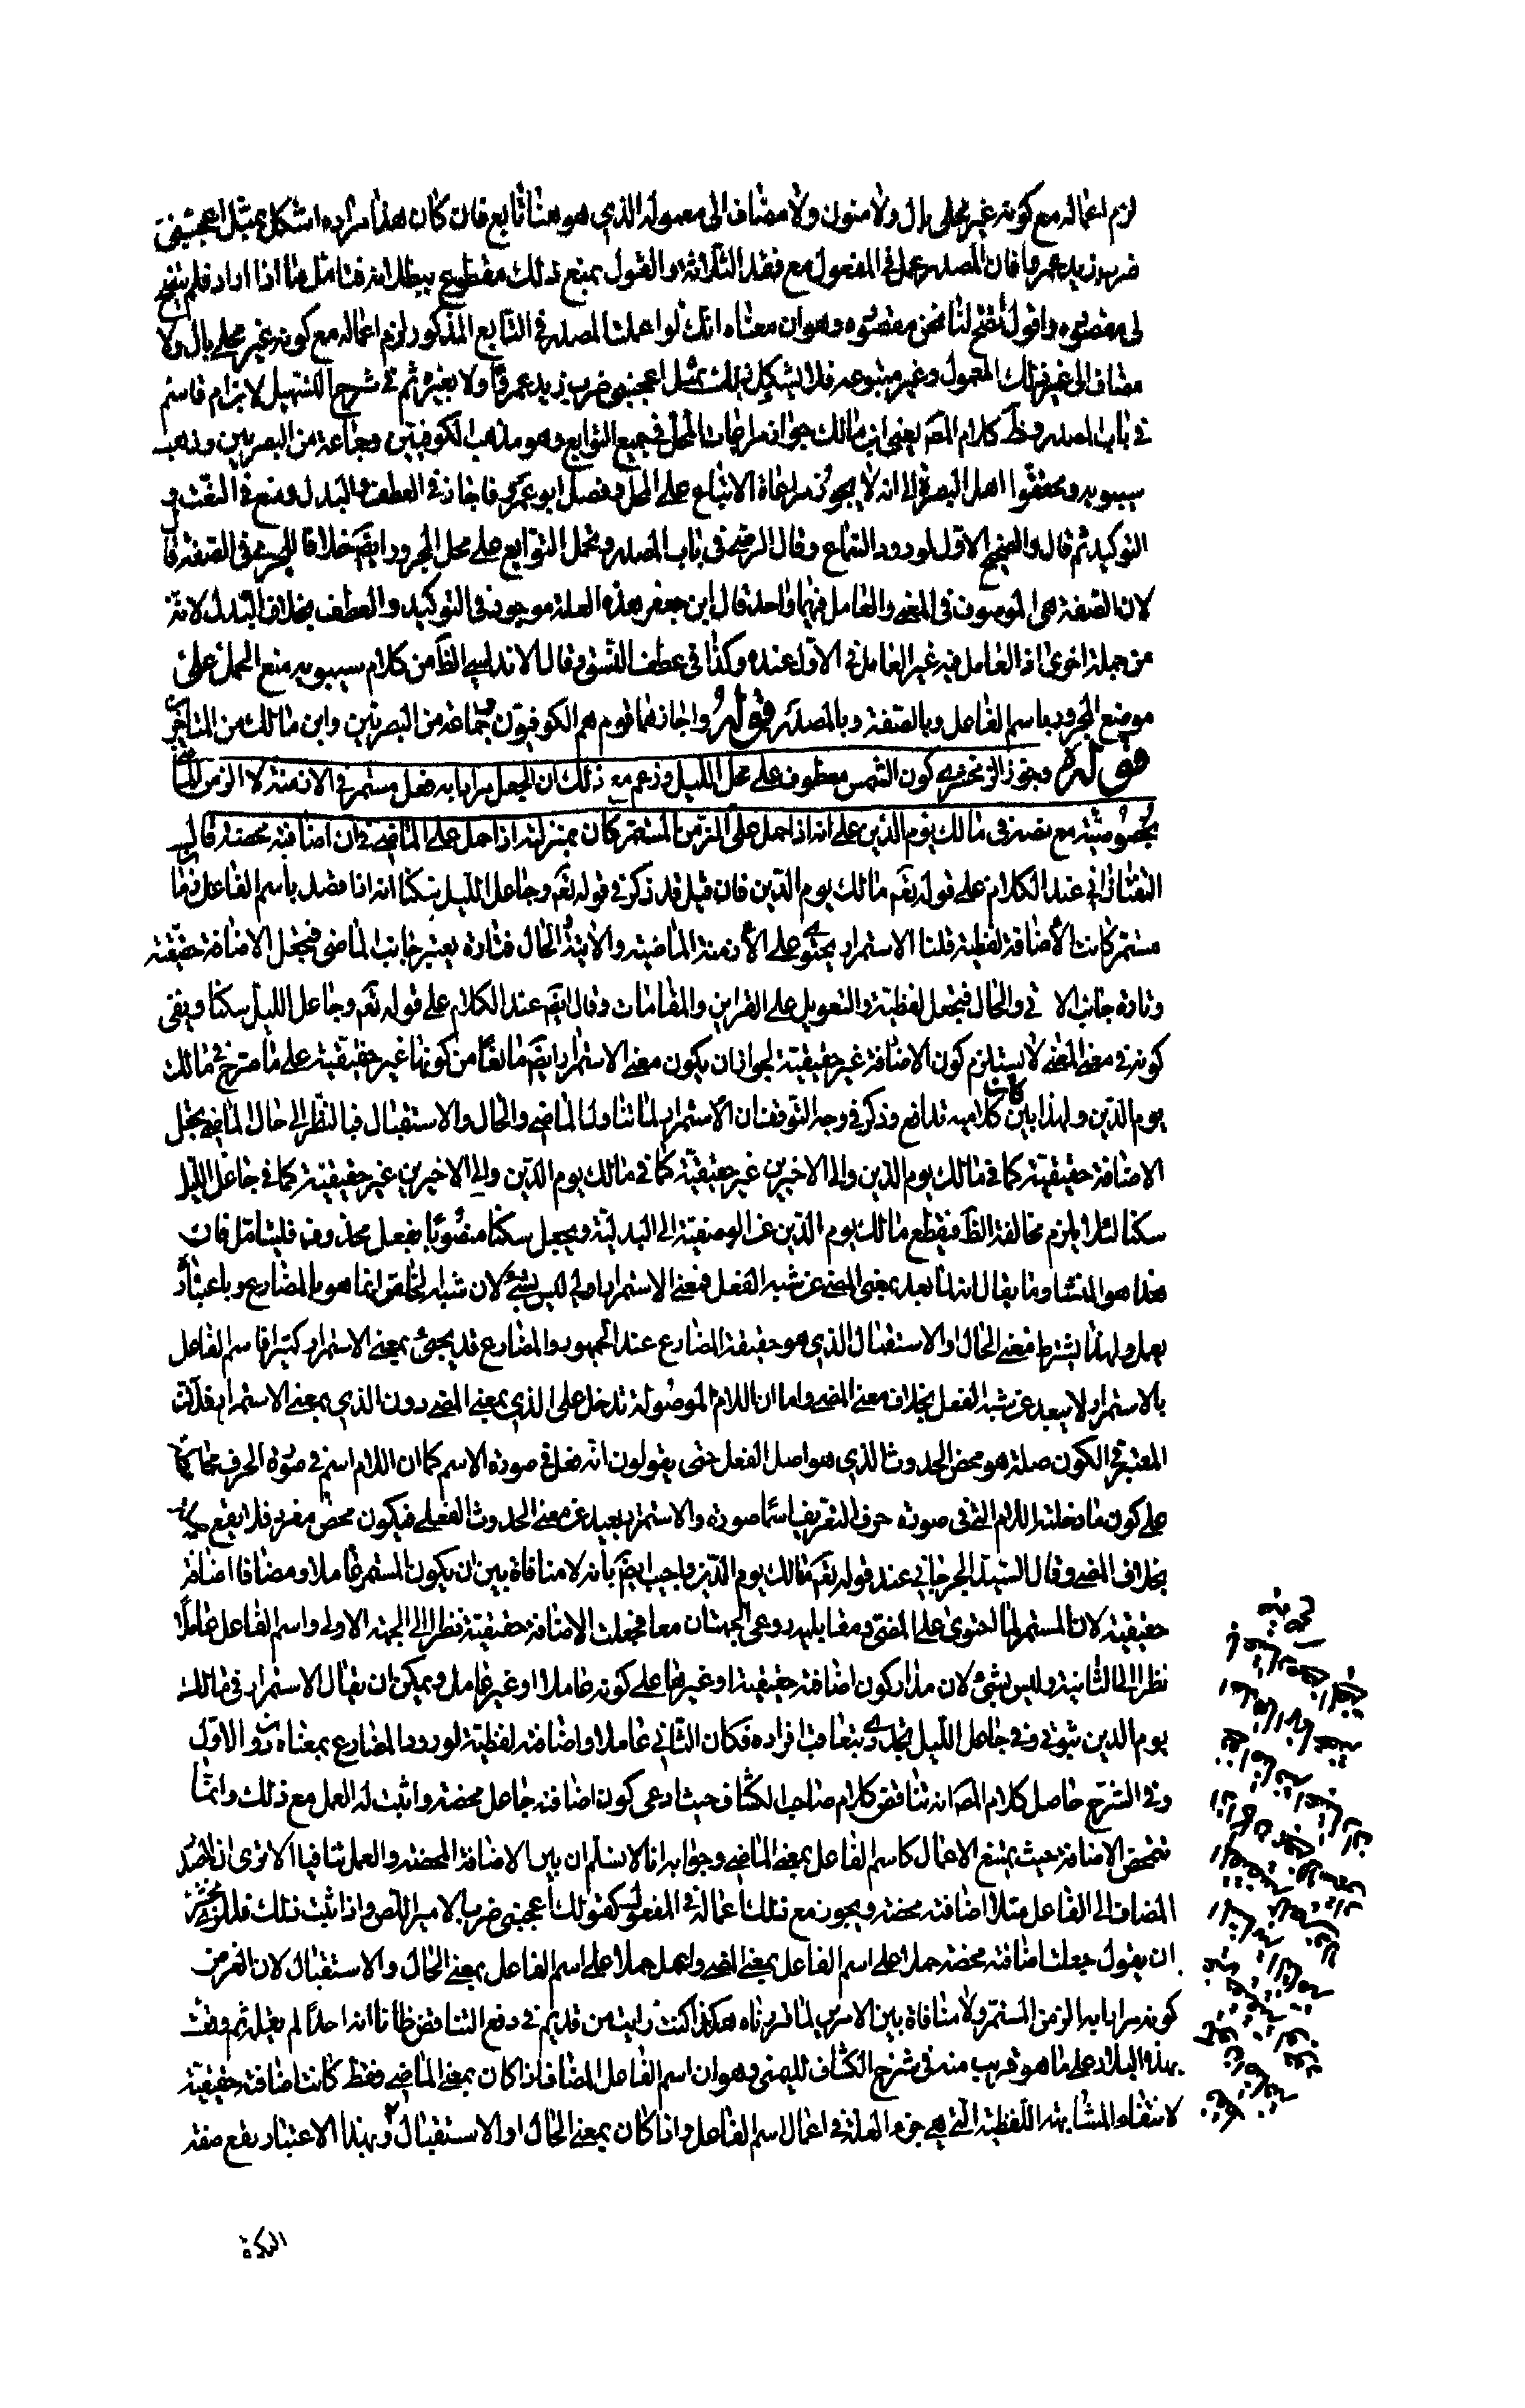 لزم اعماله مع كونه غير محلى بال ولا منون ولا مضاف الى معموله الذي هو هنا تابع فان كان هذا مراده اشكل بمثل اعجبني
ضرب زيد عمرا فان المصدر عمل في المفعول مع فقد الثلاثة والقول بمنع ذلك مقطوع ببطلانه فتامل ما اذا اراد فلم يتضح
لي مقصوده واقول لنا من مقصوده وهو ان معناه انك لو اعملت المصدر في التابع المذكور لزم اعماله مع كونه غير محلى بال ولا
مضاف الى غير ذلك المعمول وغير متبوعه فلا يشكل ذلك بمثل اعجبني ضرب زيد عمرا ولا بغيره ثم في شرح التسهيل لابن ام قاسم
في باب المصدر وظ كلام المص يعني ابن مالك جواز مراعات المحل في جميع التوابع وهو مذهب الكوفيين وجماعة من البصريين وذهب
سيبويه ومحققوا اهل البصرة الى انه لا يجوز مراعاة الاتباع على المحل وفصل ابو عمرو فاجاز في العطف والبدل ومنع في النعت و
التوكيد ثم قال والصحيح الاول لورود السماع وقال الرضي في باب المصدر وتحمل التوابع على محل المجرور ايضا خلافا للجرمي في الصفة قا
لان الصفة هي الموصوف في المعنى والعامل فيهما واحد قال ابن جعفر هذه العلة موجودة في التوكيد والعطف بخلاف البدل لانه
من جملة اخرى اذ العامل فيه غير العامل في الاول عنده وكذا في عطف النسق وقال الاندلسي الظ من كلام سيبويه منع الحمل على
موضع المجرور باسم الفاعل وبالصفة وبالمصدر قوله واجازهما قوم هم الكوفيون وجماعة من البصريين وابن مالك من المتاخرين
قوله وجوز الزمخشري كون الشمس معطوف على محل الليل وزعم مع ذلك ان الجعل مراد به فعل مستمر في الازمنة لا الزمن الماضي
بخصوصيته مع نصه في مالك يوم الدين على انه اذا حمل على الزمن المستمر كان بمنزلته اذا حمل على الماضي في ان اضافته محضة قال
التفتازاني عند الكلام على قوله تعم مالك يوم الدين فان قيل قد ذكر في قوله تعم وجاعل الليل سكنا انه اذا قصد باسم الفاعل زمان
مستمر كانت الاضافة لفظية قلنا الاستمرار يحتوي على الازمنة الماضية والاتية والحال فتارة يعتبر جانب الماضي فيجعل الاضافة حقيقة
وتارة جانب الا تي والحال فيجعل لفظية والتعويل على القراين والمقامات وقال ايضا عند الكلام على قوله تعم وجاعل الليل سكنا
كونه في معنى المضي لا يستلزم كون الاضافة غير حقيقية لجواز ان يكون معنى الاستمرار ايضا مانعا من كونها غير حقيقية على ما صرح في مالك
يوم الدين ولهذا كان بين كلاميه تدافع وذكر في وجه التوفق ان الاستمرار لما تناول الماضي والحال والاستقبال فبالنظر الى حال الماضي يجعل
الاضافة حقيقية كما في مالك يوم الدين والى الاخيرين غير حقيقية كما في مالك يوم الدين والى الاخيرين غير حقيقية كما في جاعل الليل
سكنا لئلا يلزم مخالفة الظ فيقطع مالك يوم الدين عن الوصفية الى البدلية ويجعل سكنا منصوبا بفعل محذوف فليتامل فان
هذا هو المنشا وما يقال انه لما بعد بمعنى المضي عن شبه الفعل فمعنى الاستمرار اولى ليس بشيء لان شبه الخاص انما هو بالمضارع وباعتباره
يعمل ولهذا يشترط معنى الحال والاستقبال الذي هو حقيقة المضارع عند الجمهور والمضارع قد يجيء بمعنى الاستمرار كثيرا فاسم الفاعل
بالاستمرار لا يبعد عن شبه الفعل بخلاف معنى المضي واما ان اللام الموصولة تدخل على الذي بمعنى المضي دون الذي بمعنى الاستمرار فلان
المعتبر في الكون صلة هو محض الحدوث الذي هو اصل الفعل حتى يقولون انه فعل في صورة الاسم كما ان اللام اسم في صورة الحرف
على كون ما دخلته اللام التي في صورة حرف التعريف اسما صورة والاستمرار بعيد عن معنى الحدوث الفعلي فيكون محض مفرد فلا يقع صلة
بخلاف المضي وقال السيد الجرجاني عند قوله تعم مالك يوم الدين واجيب ايضا بانه لا منافاة بين ان يكون المستمر عاملا ومضافا اضافة
حقيقية لان المستمر لما احتوى على المضي ومقابليه روعي الجهتان معا فجعلت الاضافة حقيقية نظرا الى الجهة الاولى واسم الفاعل عاملا
نظرا الى الثانية وليس بشيء لان مدار كون اضافته حقيقية او غيرها على كونه عاملا او غير عامل ويمكن ان يقال الاستمرار في مالك
يوم الدين ثبوتي وفي جاعل الليل تجددي بتعاقب افراده فكان الثاني عاملا واضافته لفظية لورود المضارع بمعناه دون الاول
وفي الشرح حاصل كلام المص انه تناقض كلام صاحب الكشاف حيث ادعى كون اضافة جاعل محضة واثبت له العمل مع ذلك وانما
تتمحض الاضافة حيث يمتنع الاعمال كاسم الفاعل بمعنى الماضي وجوابه انا لا نسلم ان بين الاضافة المحضة والعمل تنافيا الا ترى ان المصدر
المضاف الى الفاعل مثلا اضافته محضة ويجوز مع ذلك اعماله في المفعول كقولك اعجبني ضرب الامير اللص واذا ثبت ذلك فللزمخشري
ان يقول جعلت اضافته محضة حملا على اسم الفاعل بمعنى المضي واعمل حملا على اسم الفاعل بمعنى الحال والاستقبال لان الغرض
كونه مرادا به الزمن المستمر ولا منافاة بين الامرين لما قررناه هكذا كنت رايت من قديم في دفع التناقض ظانا ان احدا لم يقله ثم وقفت
بهذه البلاد على ما هو قريب منه في شرح الكشاف لليمني وهو ان اسم الفاعل المضاف اذا كان بمعنى الماضي فقط كانت اضافته حقيقية
لانتفاء المشابهة اللفظية التي هي جزء العلة في اعمال اسم الفاعل واذا كان بمعنى الحال او الاستقبال وبهذا الاعتبار يقع صفة